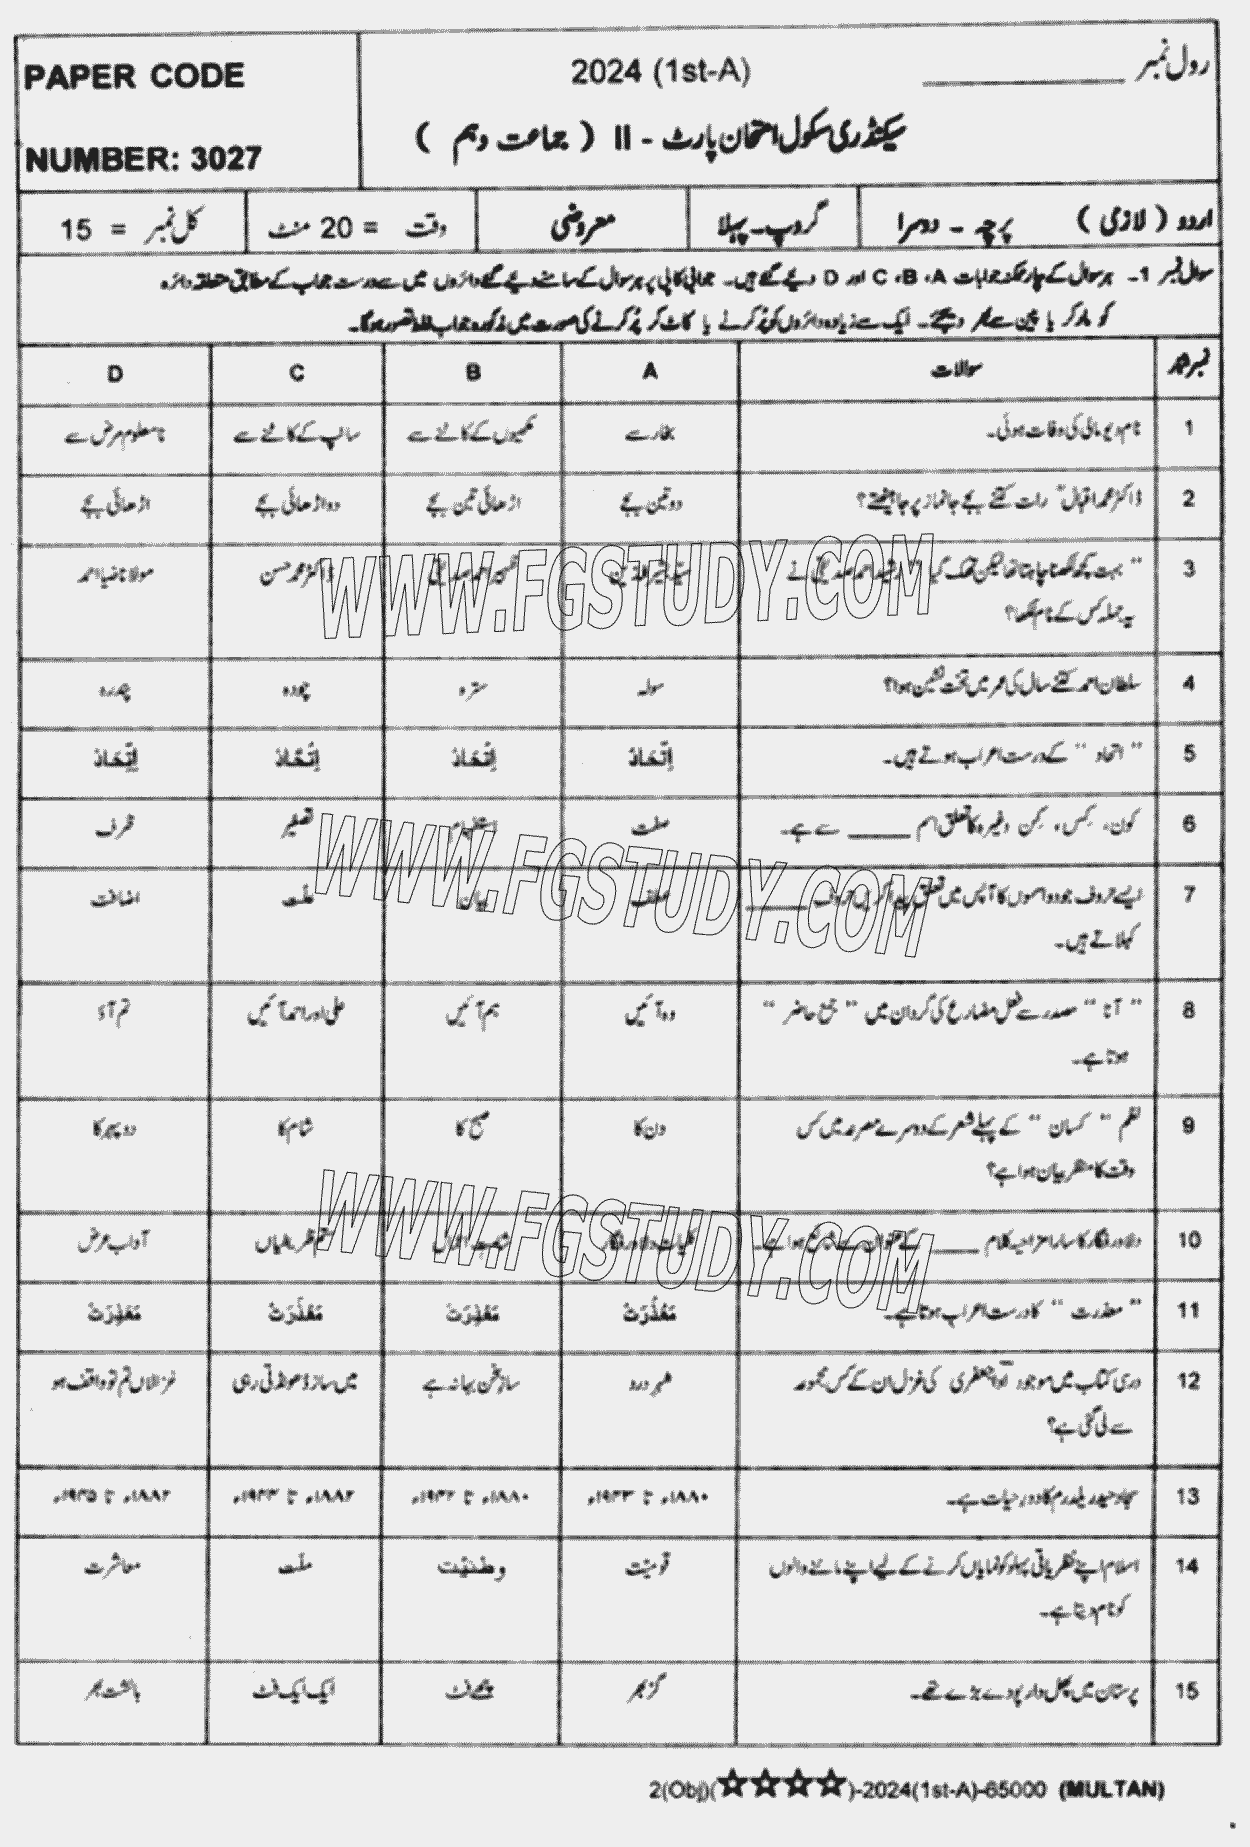 PAPER CODE
NUMBER: 3027
2024 (1st-A)
رول نمبر ____________
سیکنڈری سکول امتحان پارٹ - II ( جماعت دہم )
اردو ( لازمی ) پرچہ ۔ دوسرا
گروپ۔ پہلا
معروضی
وقت = 20 منٹ
کل نمبر = 15
سوال نمبر 1۔ ہر سوال کے چار ممکنہ جوابات A، B، C اور D دیئے گئے ہیں۔ جوابی کاپی پر ہر سوال کے سامنے دیئے گئے دائروں میں سے درست جواب کے مطابق متعلقہ دائرہ
کو مارکر یا پین سے بھر دیجئے۔ ایک سے زیادہ دائروں کو پُر کرنے یا کاٹ کر پُر کرنے کی صورت میں مذکورہ جواب غلط تصور ہوگا۔
نمبر شمار سوالات A B C D
1 نام دیو مالی کی وفات ہوئی۔ بخار سے مکھیوں کے کاٹنے سے سانپ کے کاٹنے سے نامعلوم مرض سے
2 ڈاکٹر محمد اقبالؒ رات کتنے بجے جانماز پر جا بیٹھتے؟ دو تین بجے اڑھائی تین بجے دو اڑھائی بجے اڑھائی بجے
3 " بہت کچھ لکھنا چاہتا تھا لیکن تھک گیا " رشید احمد صدیقی نے سیّد بشیر الدین ظہیر احمد صدیقی ڈاکٹر محمد حسن مولانا ضیا احمد
یہ جملہ کس کے نام لکھا؟
4 سلطان احمد کتنے سال کی عمر میں تخت نشین ہوا؟ سولہ سترہ چودہ پندرہ
5 " اتحاد " کے درست اعراب ہوتے ہیں۔ اِتّحَادْ اِتْحَادْ اِتُّحَّادْ اِتِّحَادْ
6 کون، کِس، کِن وغیرہ کا تعلق اسم ______ سے ہے۔ صفت استفہام تصغیر ظرف
7 ایسے حروف جو دو اسموں کا آپس میں تعلق پیدا کریں حروف ______ عطف بیان علّت اضافت
کہلاتے ہیں۔
8 " آنا " مصدر سے فعل مضارع کی گردان میں " جمع حاضر " وہ آئیں ہم آئیں علی اور احمد آئیں تم آؤ
ہوتا ہے۔
9 نظم " کسان " کے پہلے شعر کے دوسرے مصرعہ میں کس دن کا صبح کا شام کا دوپہر کا
وقت کا منظر بیان ہوا ہے؟
10 دلاور فگار کا سارا مزاحیہ کلام ______ کے عنوان سے شائع ہوا ہے۔ کلیات دلاور فگار شامت اعمال ستم ظریفیاں آداب عرض
11 " معذرت " کا درست اعراب ہوتا ہے۔ مَعْذُرَتْ مَعْذِرَتْ مَعْذَرَتْ مَعَذِرَتْ
12 درسی کتاب میں موجود ادؔا جعفری کی غزل ان کے کس مجموعہ شہر درد سازِ سخن بہانہ ہے میں ساز ڈھونڈتی رہی غزالاں تم تو واقف ہو
سے لی گئی ہے؟
13 سجاد حیدر یلدرم کا دور حیات ہے۔ ۱۸۸۰ء تا ۱۹۴۳ء ۱۸۸۰ء تا ۱۹۴۲ء ۱۸۸۲ء تا ۱۹۴۳ء ۱۸۸۲ء تا ۱۹۴۵ء
14 اسلام اپنے نظریاتی پہلو کو نمایاں کرنے کے لیے اپنے ماننے والوں قومیّت وطنیّت ملّت معاشرت
کو نام دیتا ہے۔
15 پرستان میں پھل دار پودے بڑے تھے۔ گز بھر چھے فٹ ایک ایک فٹ بالشت بھر
WWW.FGSTUDY.COM
WWW.FGSTUDY.COM
WWW.FGSTUDY.COM
2(Obj)(☆☆☆☆)-2024(1st-A)-65000 (MULTAN)